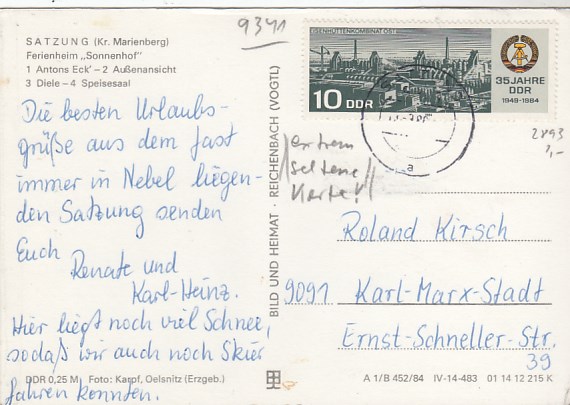 SATZUNG (Kr. Marienberg)
Ferienheim „Sonnenhof"
1 Antons Eck' – 2 Außenansicht
3 Diele – 4 Speisesaal
9341
EISENHÜTTENKOMBINAT OST
10 DDR
35 JAHRE
DDR
1949-1984
2893
Die besten Urlaubs-
grüße aus dem fast
immer in Nebel liegen-
den Satzung senden
Euch
Renate und
Karl-Heinz.
Hier liegt noch viel Schnee,
sodaß wir auch noch Skier
fahren konnten.
extrem
seltene
Karte!!
BILD UND HEIMAT · REICHENBACH (VOGTL)
Roland Kirsch
9091 Karl-Marx-Stadt
Ernst-Schneller-Str.
39
DDR 0,25 M Foto: Karpf, Oelsnitz (Erzgeb.)
A 1/B 452/84 IV-14-483 01 14 12 215 K